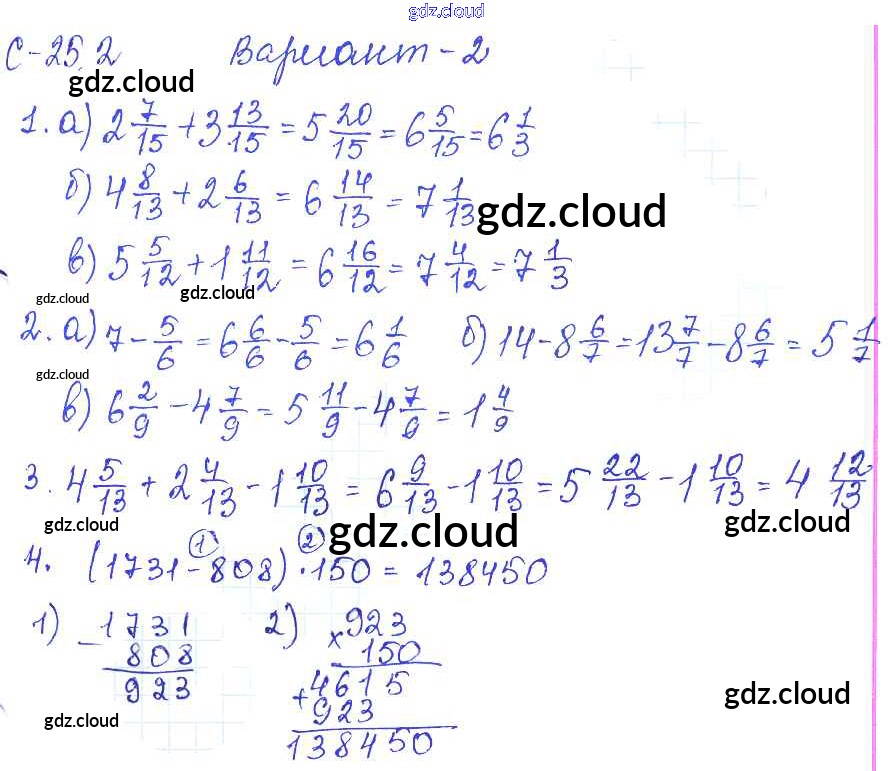 gdz.cloud
С-25.2 Вариант-2
gdz.cloud
1. а) 2 7/15 + 3 13/15 = 5 20/15 = 6 5/15 = 6 1/3
б) 4 8/13 + 2 6/13 = 6 14/13 = 7 1/13
gdz.cloud
в) 5 5/12 + 1 11/12 = 6 16/12 = 7 4/12 = 7 1/3
gdz.cloud gdz.cloud
2. а) 7 - 5/6 = 6 6/6 - 5/6 = 6 1/6 б) 14 - 8 6/7 = 13 7/7 - 8 6/7 = 5 1/7
gdz.cloud
в) 6 2/9 - 4 7/9 = 5 11/9 - 4 7/9 = 1 4/9
3. 4 5/13 + 2 4/13 - 1 10/13 = 6 9/13 - 1 10/13 = 5 22/13 - 1 10/13 = 4 12/13
gdz.cloud gdz.cloud gdz.cloud
1 2
4. (1731 - 808) · 150 = 138450
1) - 1731 2) × 923
808 150
923 + 4615
923
138450
gdz.cloud gdz.cloud